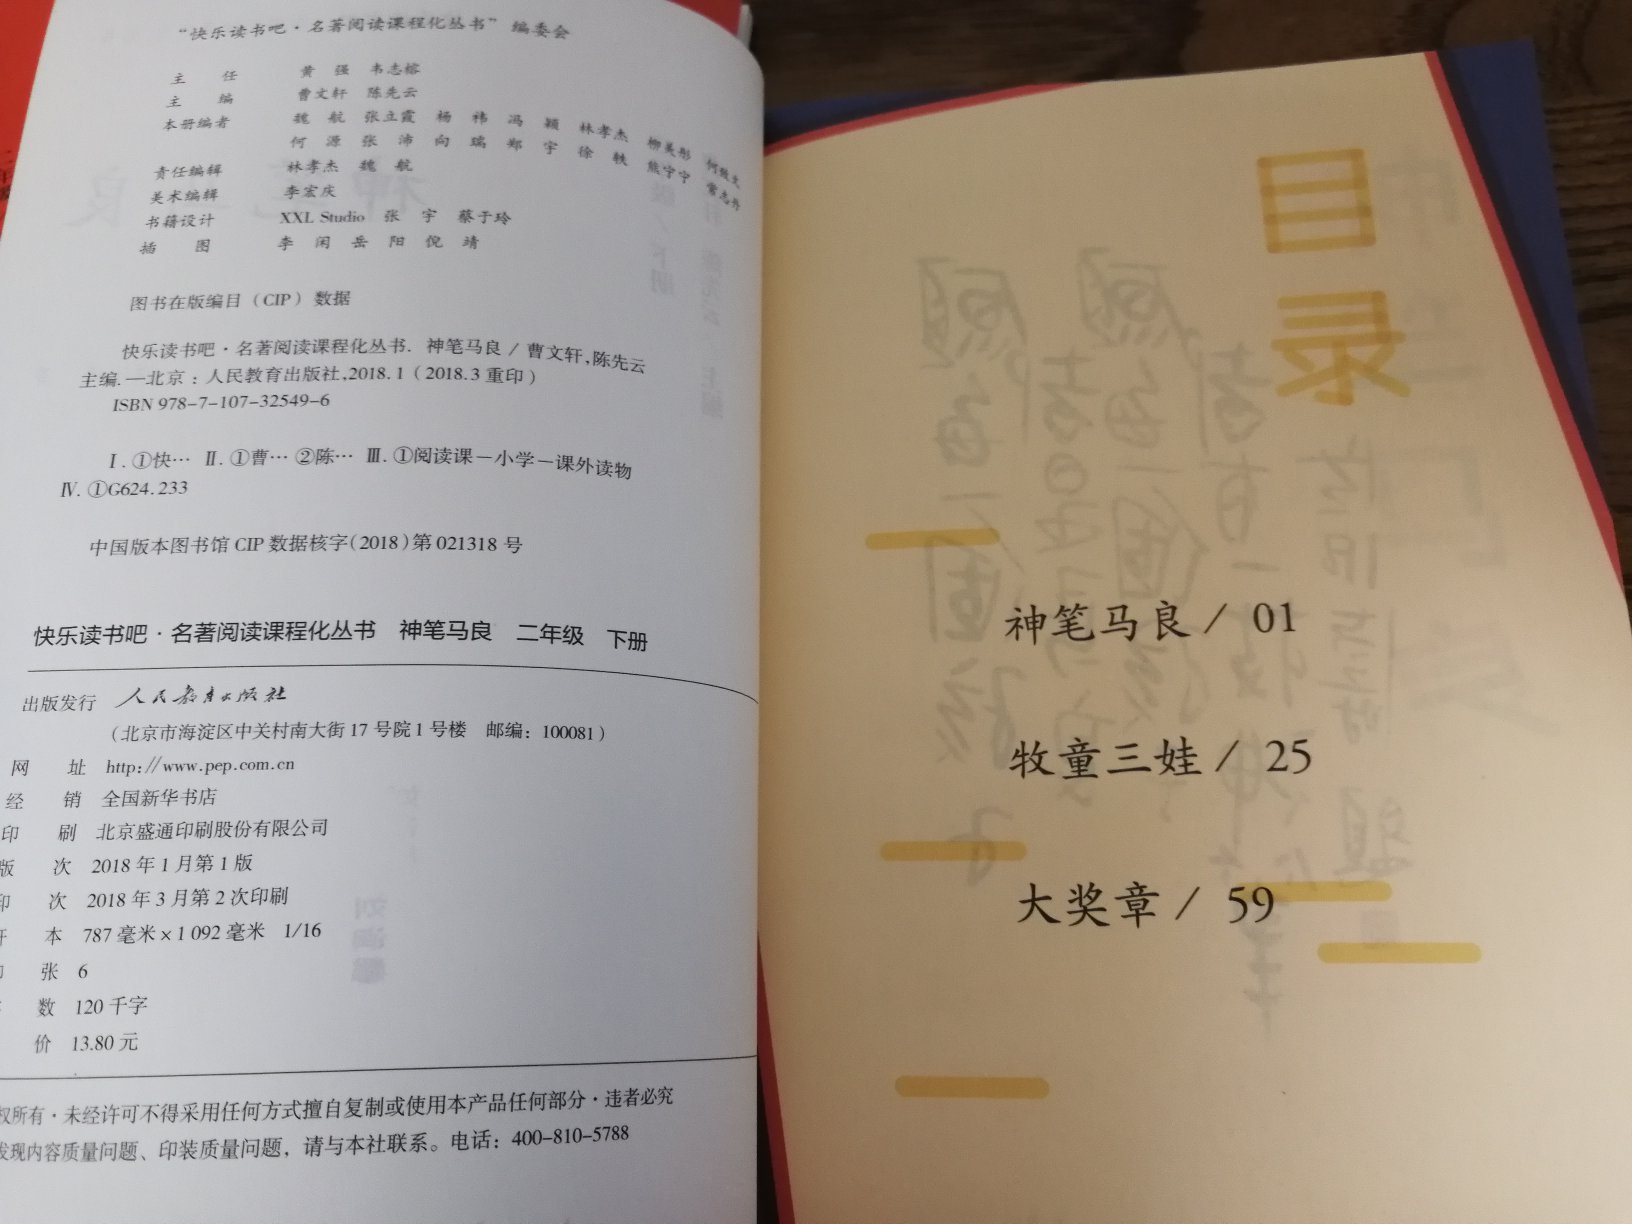 “快乐读书吧·名著阅读课程化丛书”编委会
主 任 黄 强 韦志榕
主 编 曹文轩 陈先云
本册编者 魏 航 张立霞 杨 祎 冯 颖 林孝杰 柳美彤 何致文
何 源 张 沛 向 瑞 郑 宇 徐 轶 熊宁宁 常志丹
责任编辑 林孝杰 魏 航
美术编辑 李宏庆
书籍设计 XXL Studio 张 宇 蔡于玲
插 图 李 闲 岳 阳 倪 靖
图书在版编目（CIP）数据
快乐读书吧·名著阅读课程化丛书. 神笔马良 / 曹文轩,陈先云
主编.—北京：人民教育出版社,2018.1（2018.3重印）
ISBN 978-7-107-32549-6
Ⅰ.①快… Ⅱ.①曹… ②陈… Ⅲ.①阅读课－小学－课外读物
Ⅳ.①G624.233
中国版本图书馆CIP数据核字(2018)第021318号
快乐读书吧·名著阅读课程化丛书 神笔马良 二年级 下册
出版发行 人民教育出版社
（北京市海淀区中关村南大街17号院1号楼 邮编：100081）
网 址 http://www.pep.com.cn
经 销 全国新华书店
印 刷 北京盛通印刷股份有限公司
版 次 2018年1月第1版
印 次 2018年3月第2次印刷
开 本 787毫米×1 092毫米 1/16
印 张 6
数 120千字
价 13.80元
权所有·未经许可不得采用任何方式擅自复制或使用本产品任何部分·违者必究
发现内容质量问题、印装质量问题，请与本社联系。电话：400-810-5788
目录
神笔马良 / 01
牧童三娃 / 25
大奖章 / 59